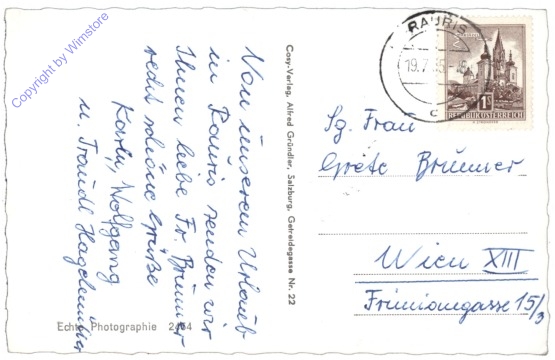 Von unserem Urlaub
in Rauris senden wir
Ihnen liebe Fr. Brunner
recht schöne Grüße
Karin, Wolfgang
u. Traudl
Cosy-Verlag, Alfred Gründler, Salzburg, Getreidegasse Nr. 22
Echte Photographie 2464
RAURIS
19.7.65
c
1S
REPUBLIK ÖSTERREICH
Sg. Frau
Grete Brunner
Wien XIII
15/3
Copyright by Wimstore